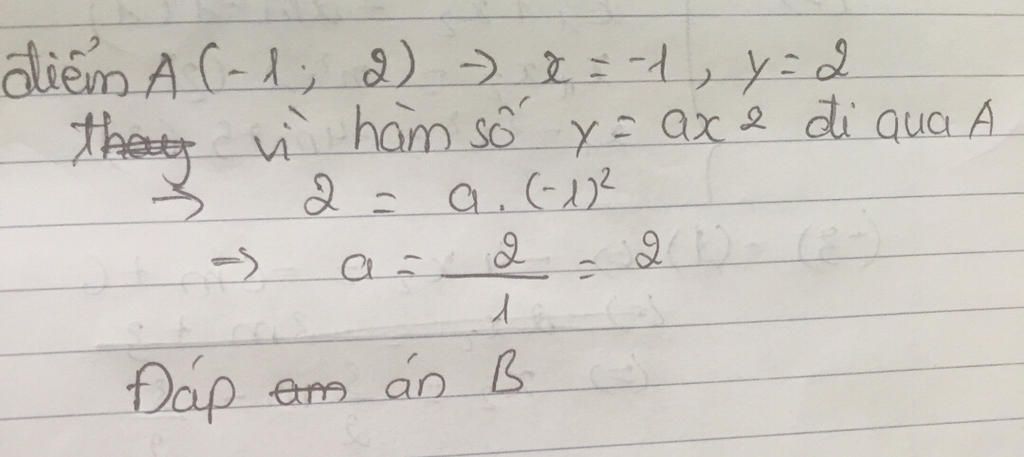 điểm A (-1; 2) → x = -1, y = 2
thay vì hàm số y = ax 2 đi qua A
→ 2 = a. (-1)²
→ a = 2/1 = 2
Đáp am án B